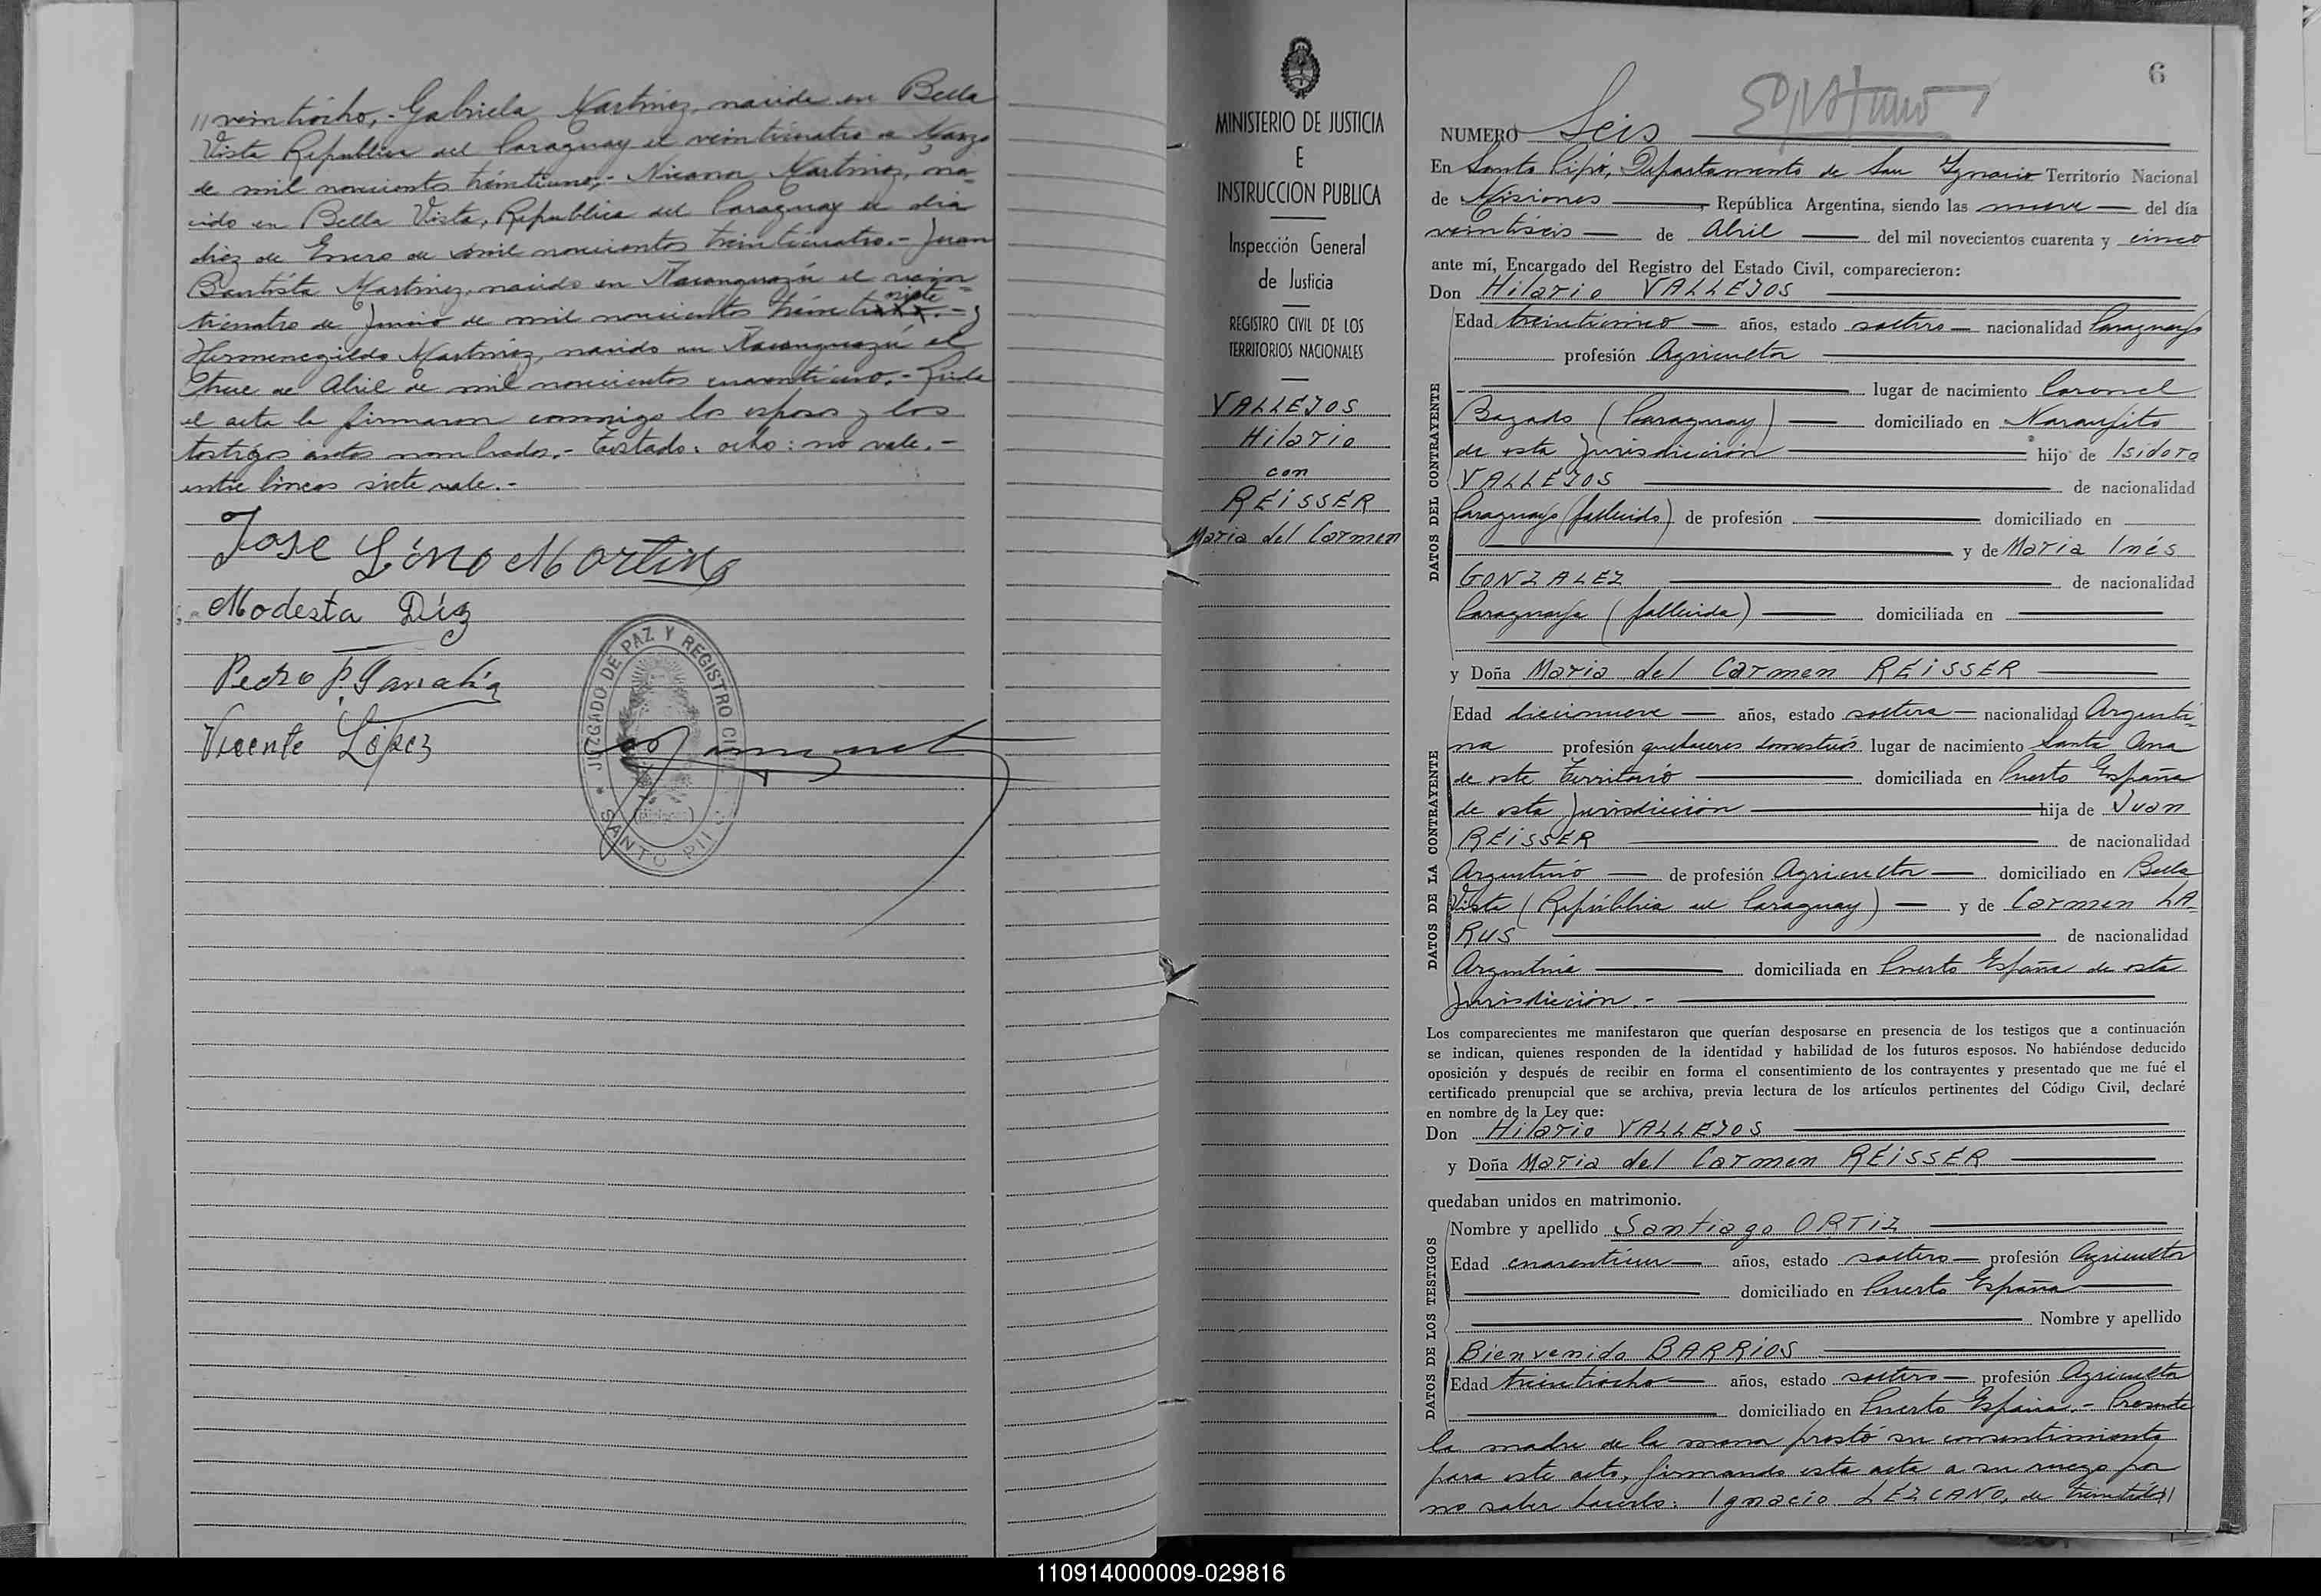 // veintiocho,- Gabriela Martinez, nacida en Bella
Vista Republica del Paraguay el veinticuatro de Marzo
de mil novecientos treintiuno,- Nicanor Martinez, na-
cido en Bella Vista, Republica del Paraguay el dia
diez de Enero de mil novecientos treinticuatro.- Juan
Bautista Martinez, nacido en el vein-
siete
ticuatro de Junio de mil novecientos treinti - y
Hermenegildo Martinez, nacido en el
trece de Abril de mil novecientos cuarentiuno.- Leida
el acta la firmaron conmigo los esposos y los
testigos antes nombrados.- Testado: ocho: no vale.-
entre lineas siete vale.-
Jose Lino Martinez
Modesta Diz
Pedro P.
Vicente López
JUZGADO DE PAZ Y REGISTRO CIVIL
SANTO PIPO
(Misiones)
MINISTERIO DE JUSTICIA
E
INSTRUCCION PUBLICA
Inspección General
de Justicia
REGISTRO CIVIL DE LOS
TERRITORIOS NACIONALES
VALLEJOS
Hilario
con
REISSER
Maria del Carmen
6
NUMERO Seis
En Santo Pipó, Departamento de San Ignacio Territorio Nacional
de Misiones, República Argentina, siendo las nueve del día
veintiseis de Abril del mil novecientos cuarenta y cinco
ante mí, Encargado del Registro del Estado Civil, comparecieron:
Don Hilario VALLEJOS
DATOS DEL CONTRAYENTE
Edad treinticinco años, estado soltero nacionalidad Paraguayo
profesión Agricultor
lugar de nacimiento Coronel
Bogado (Paraguay) domiciliado en Naranjito
de esta Jurisdicción hijo de Isidoro
VALLEJOS de nacionalidad
Paraguayo (fallecido) de profesión domiciliado en
y de Maria Inés
GONZALEZ de nacionalidad
Paraguaya (fallecida) domiciliada en
y Doña Maria del Carmen REISSER
DATOS DE LA CONTRAYENTE
Edad diecinueve años, estado soltera nacionalidad Argenti-
na profesión quehaceres domesticos lugar de nacimiento Santa Ana
de este Territorio domiciliada en Puerto España
de esta Jurisdicción hija de Juan
REISSER de nacionalidad
Argentino de profesión Agricultor domiciliado en Bella
Vista (República del Paraguay) y de Carmen LA-
RUS de nacionalidad
Argentina domiciliada en Puerto España de esta
Jurisdicción.-
Los comparecientes me manifestaron que querían desposarse en presencia de los testigos que a continuación
se indican, quienes responden de la identidad y habilidad de los futuros esposos. No habiéndose deducido
oposición y después de recibir en forma el consentimiento de los contrayentes y presentado que me fué el
certificado prenupcial que se archiva, previa lectura de los artículos pertinentes del Código Civil, declaré
en nombre de la Ley que:
Don Hilario VALLEJOS
y Doña Maria del Carmen REISSER
quedaban unidos en matrimonio.
DATOS DE LOS TESTIGOS
Nombre y apellido Santiago ORTIZ
Edad años, estado soltero profesión Agricultor
domiciliado en Puerto España
Nombre y apellido
Bienvenido BARRIOS
Edad treintiocho años, estado soltero profesión Agricultor
domiciliado en Puerto España.- Presente
la madre de la menor prestó su consentimiento
para este acto, firmando esta acta a su ruego por
no saber hacerlo: Ignacio LEZCANO, de treintidos //
110914000009-029816